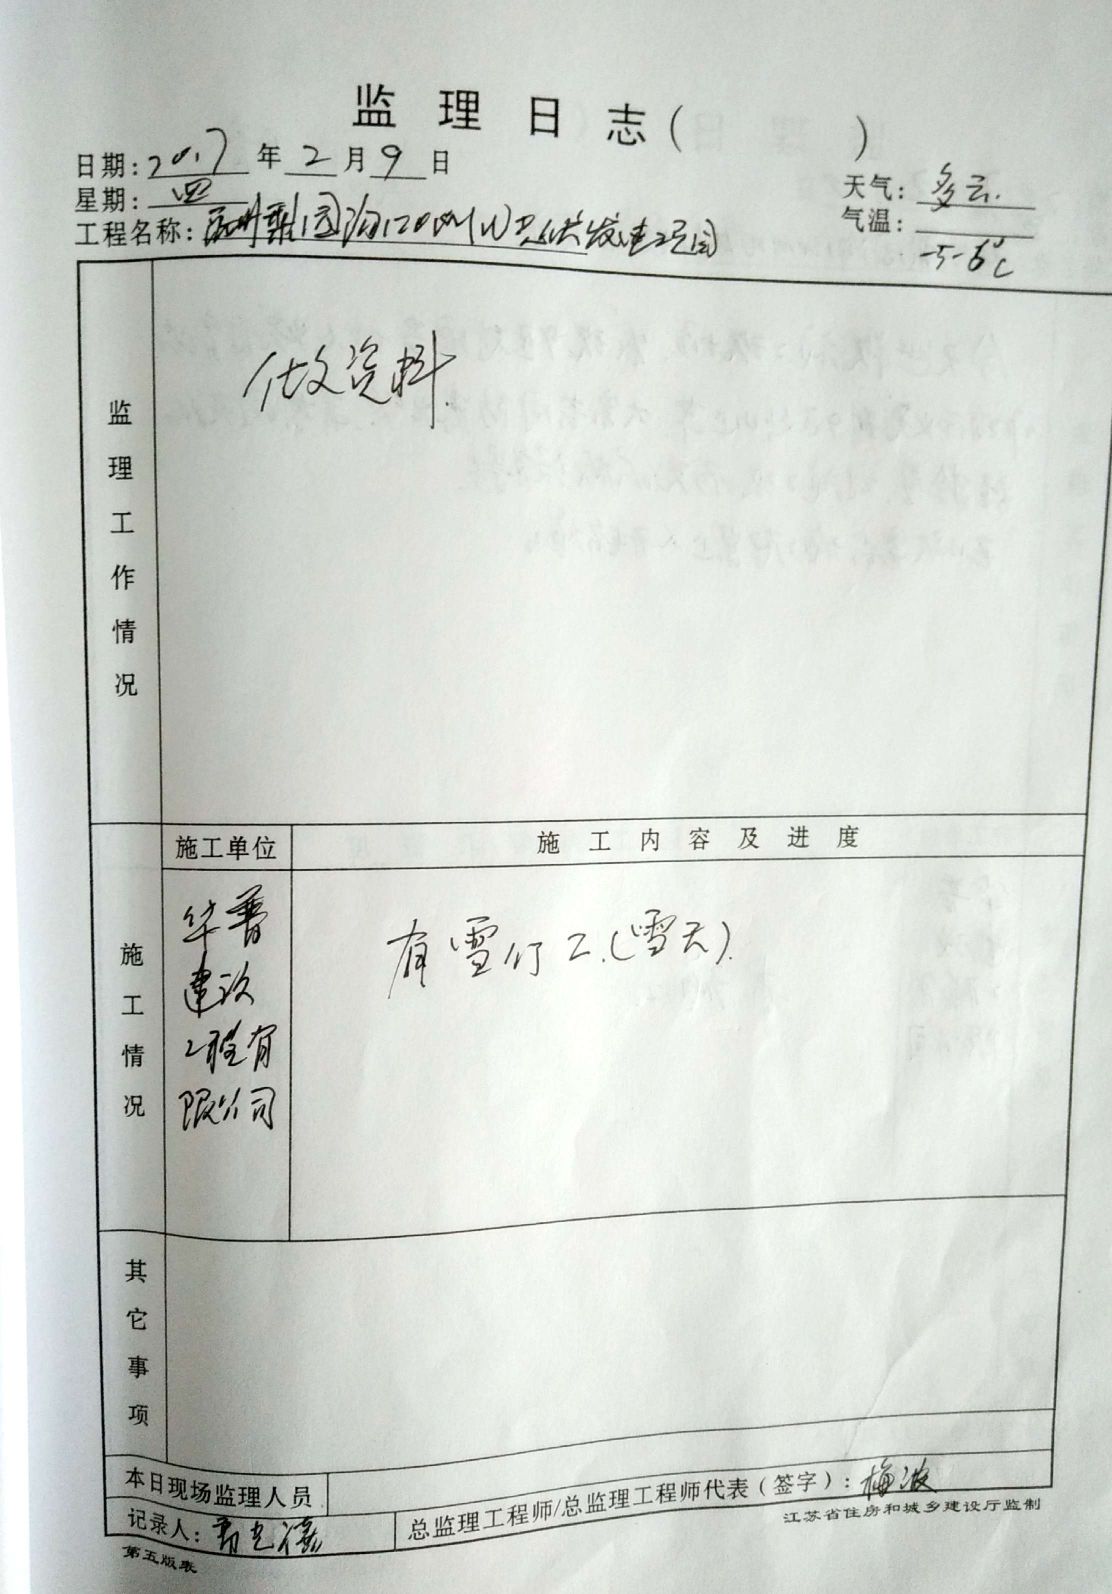 监理日志( )
日期: 2017 年 2 月 9 日
星期: 四
天气: 多云.
气温: -5-6℃
工程名称:
监理工作情况
做资料.
施工情况
施工单位
施工内容及进度
华普
建设
工程有
限公司
有雪停工.(雪天).
其它事项
本日现场监理人员
记录人:
总监理工程师/总监理工程师代表(签字): 梅波
第五版表
江苏省住房和城乡建设厅监制